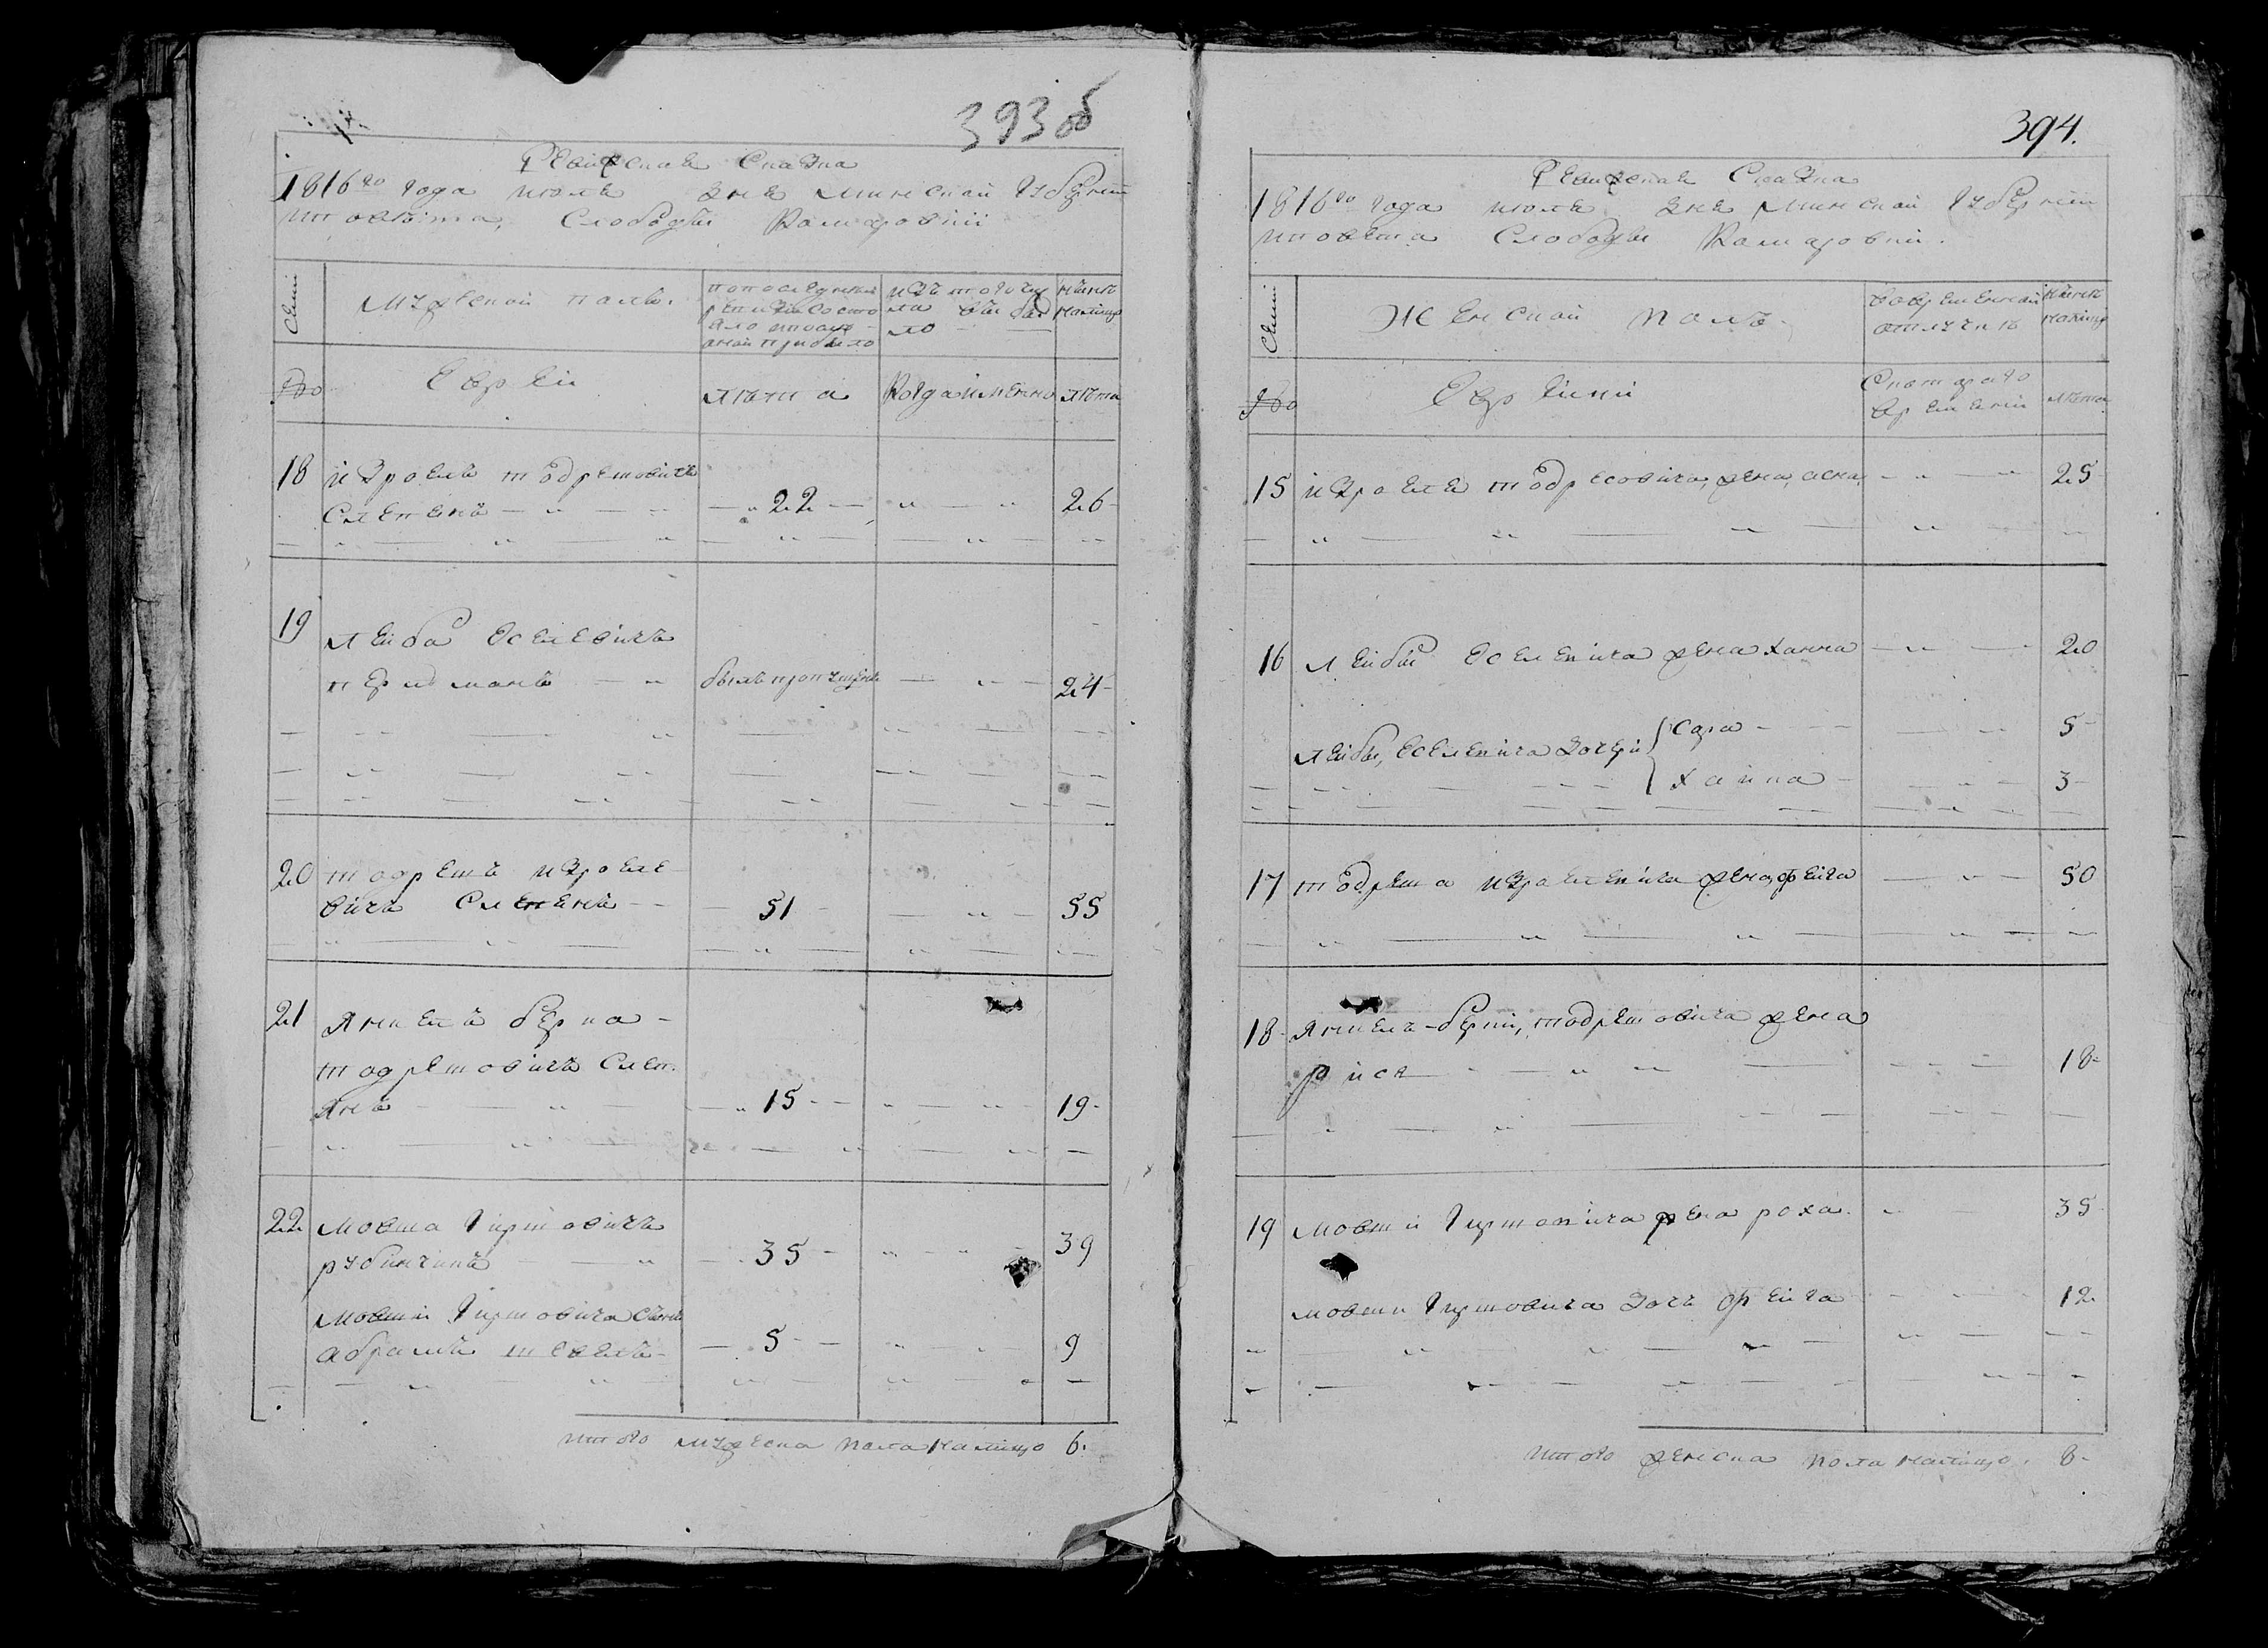 393 об
Ревизская Сказка
1816го года июля дня Минской Губернии
и повета, Слободы Комаровки
Семи
Мужеской полъ.
по последней ревизи состояло и после оной прибыло
изъ того числа выбыло
ныне налицо
No
Евреи
лета
Когда именно
лета
18 израель тодресовичъ
Слепенъ 22 26
19 Лейба Еселевичъ
перлманъ былъ пропущенъ 24
20 тодресъ израеле
вичъ Слепенъ 51 55
21 Янкель берка
тодресовичъ Слеп.
янъ 15 19
22 мовша Гиршовичъ
рубинчикъ 35 39
мовши Гиршовича сынъ
абрамъ 5 9
итого мужеска пола налицо 6.
394.
Ревизская Сказка
1816го года июля дня Минской Губернии
и повета Слободы Комаровки.
Семи
Женской полъ.
во временной отлучке
ныне налицо
No
Еврейки
С котораго времени
лета
15 израеля тодресовича, жена, асна 25
16 Лейбы Еселевича жена ханна 20
Лейбы, Еселевича дочери { Сора 5
Хайка 3
17 тодреса израелевича жена фейга 50
18 Янкель-берки, тодресовича жена
рися 18
19 мовши Гиршовича жена роха. 35
мовши Гиршовича дочь фрейга 12
итого женска пола налицо. 8